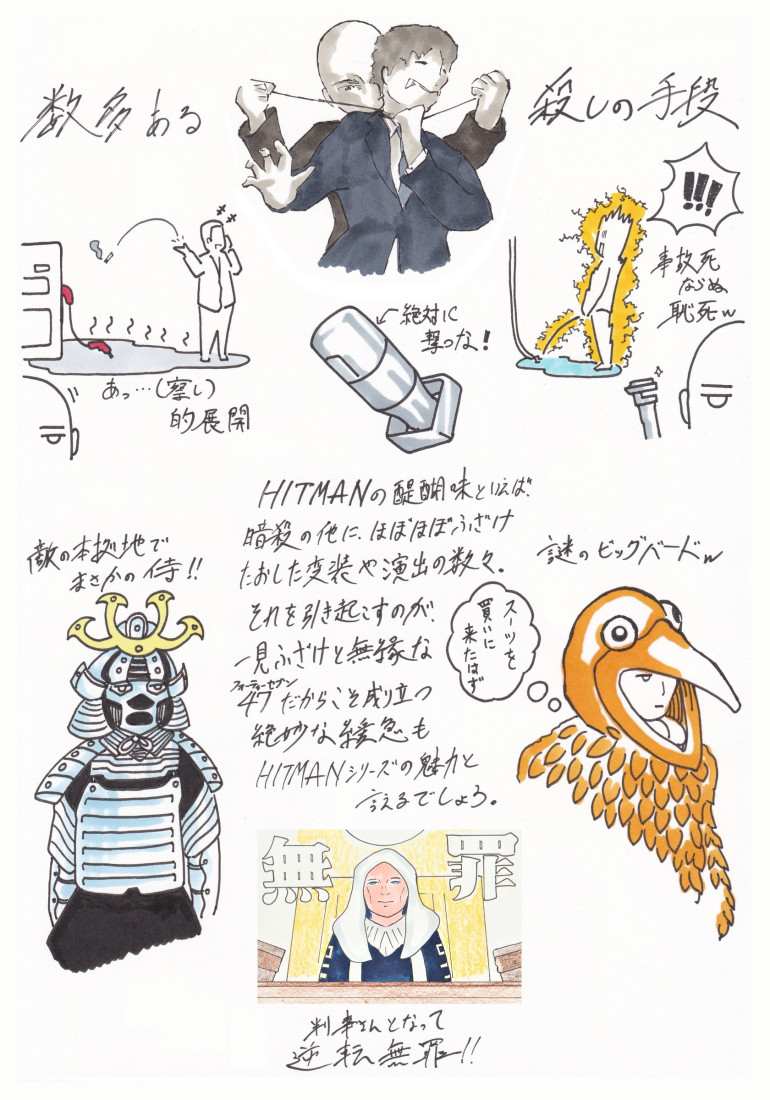 数多ある
殺しの手段
!!!
事故死
ならぬ
恥死w
←絶対に
撃つな!
あっ…(察し)
的展開
HITMANの醍醐味と云えば、
暗殺の他に、ほぼほぼふざけ
たおした変装や演出の数々。
それを引き起こすのが、
一見ふざけと無縁な
フォーティーセブン
47だからこそ成り立つ
絶妙な緩急も
HITMANシリーズの魅力と
言えるでしょう。
敵の本拠地で
まさかの侍!!
謎のビッグバードw
スーツを
買いに
来たはず
無罪
判事さんとなって
逆転無罪!!